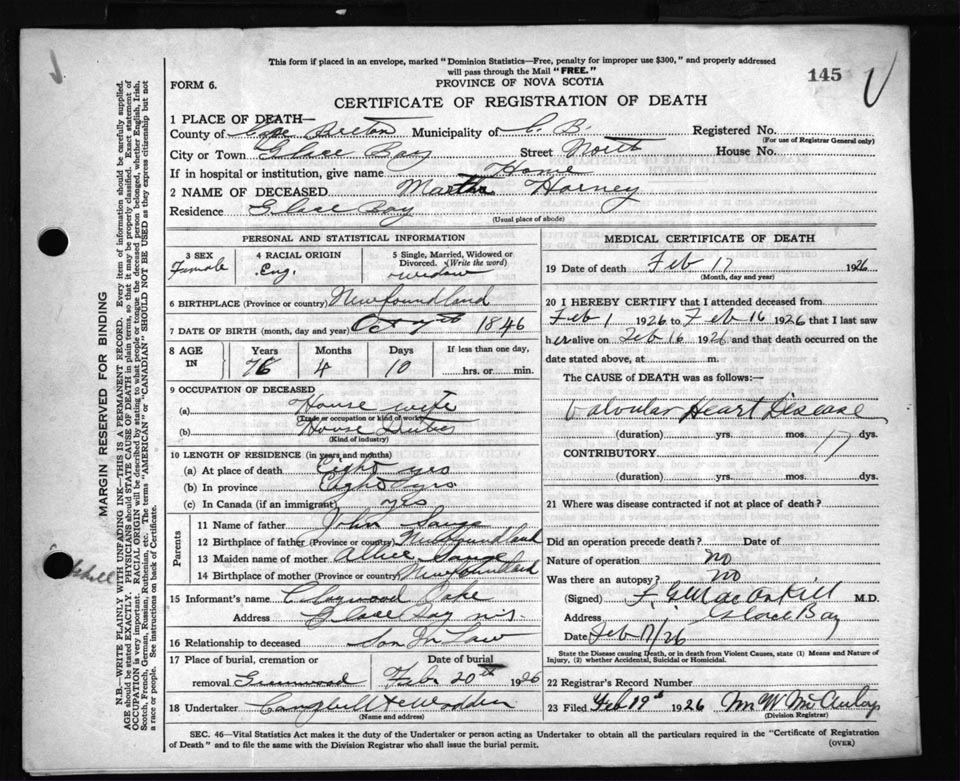 This form if placed in an envelope, marked "Dominion Statistics—Free, penalty for improper use $300," and properly addressed
will pass through the Mail "FREE."
145
FORM 6.
PROVINCE OF NOVA SCOTIA
CERTIFICATE OF REGISTRATION OF DEATH
1 PLACE OF DEATH—
County of Cape Breton Municipality of C. B. Registered No.
(For use of Registrar General only)
City or Town Glace Bay Street North House No.
If in hospital or institution, give name Home
2 NAME OF DECEASED Martha Harney
Residence Glace Bay
(Usual place of abode)
PERSONAL AND STATISTICAL INFORMATION
3 SEX
Female
4 RACIAL ORIGIN
Eng.
5 Single, Married, Widowed or
Divorced. (Write the word)
widow
6 BIRTHPLACE (Province or country) Newfoundland
7 DATE OF BIRTH (month, day and year) Oct 7th 1846
8 AGE IN
Years Months Days If less than one day,
76 4 10 hrs. or min.
9 OCCUPATION OF DECEASED
(a) House wife
(Trade or occupation or kind of work)
(b) House Duties
(Kind of industry)
10 LENGTH OF RESIDENCE (in years and months)
(a) At place of death Eight yrs
(b) In province Eight yrs
(c) In Canada (if an immigrant) yes
Parents
11 Name of father John
12 Birthplace of father (Province or country) Newfoundland
13 Maiden name of mother
14 Birthplace of mother (Province or country) Newfoundland
15 Informant's name
Address Glace Bay N.S.
16 Relationship to deceased Son In Law
17 Place of burial, cremation or
removal Greenwood
Date of burial
Feb 20th 1926
18 Undertaker Campbell
(Name and address)
MEDICAL CERTIFICATE OF DEATH
19 Date of death Feb 17 1926
(Month, day and year)
20 I HEREBY CERTIFY that I attended deceased from
Feb 1 1926 to Feb 16 1926 that I last saw
her alive on Feb 16 1926 and that death occurred on the
date stated above, at m.
The CAUSE OF DEATH was as follows:—
Valvular Heart Disease
(duration) yrs. mos. 17 dys.
CONTRIBUTORY
(duration) yrs. mos. dys.
21 Where was disease contracted if not at place of death?
Did an operation precede death? Date of
Nature of operation no
Was there an autopsy? no
(Signed) M.D.
Address Glace Bay
Date Feb 17/26
State the Disease causing Death, or in death from Violent Causes, state (1) Means and Nature of
Injury, (2) whether Accidental, Suicidal or Homicidal.
22 Registrar's Record Number
23 Filed Feb 19 1926
(Division Registrar)
SEC. 46—Vital Statistics Act makes it the duty of the Undertaker or person acting as Undertaker to obtain all the particulars required in the "Certificate of Registration
of Death" and to file the same with the Division Registrar who shall issue the burial permit.
(OVER)
MARGIN RESERVED FOR BINDING
N.B.—WRITE PLAINLY WITH UNFADING INK—THIS IS A PERMANENT RECORD. Every item of information should be carefully supplied.
AGE should be stated EXACTLY. PHYSICIANS should STATE CAUSE OF DEATH in plain terms, so that it may be properly classified. Exact statement of
OCCUPATION is very important. RACIAL ORIGIN will be described by stating to what people or tongue the deceased person belonged, whether English, Irish,
Scotch, French, German, Russian, Ruthenian, etc. The terms "AMERICAN" or "CANADIAN" SHOULD NOT BE USED as they express citizenship but not
a race or people. See instructions on back of Certificate.